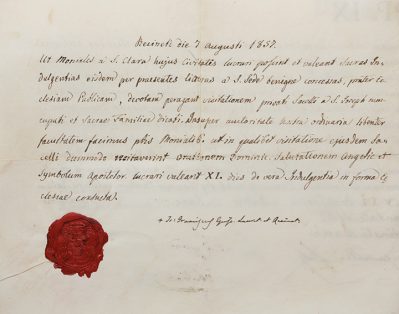 Recineti die 7 Augusti 1857.
Ut Moniales a S. Clara hujus Civitatis lucrari possint et valeant Sacras In-
dulgentias eisdem per praesentes litteras a S. Sede benigne concessas, praeter Ec-
clesiam Publicam, devotam peragant visitationem privati Sacelli a S. Joseph nun-
cupati et Sacrae Familiae dicati. Insuper auctoritate nostra ordinaria libenter
facultatem facimus ptis Monialibus ut in qualibet visitatione ejusdem Sa-
celli dummodo recitaverint orationem Dominic. Salutationem Angelic. et
Symbolum Apostolor. lucrari valeant XL dies de vera Indulgentia in forma Ec-
clesiae consueta.